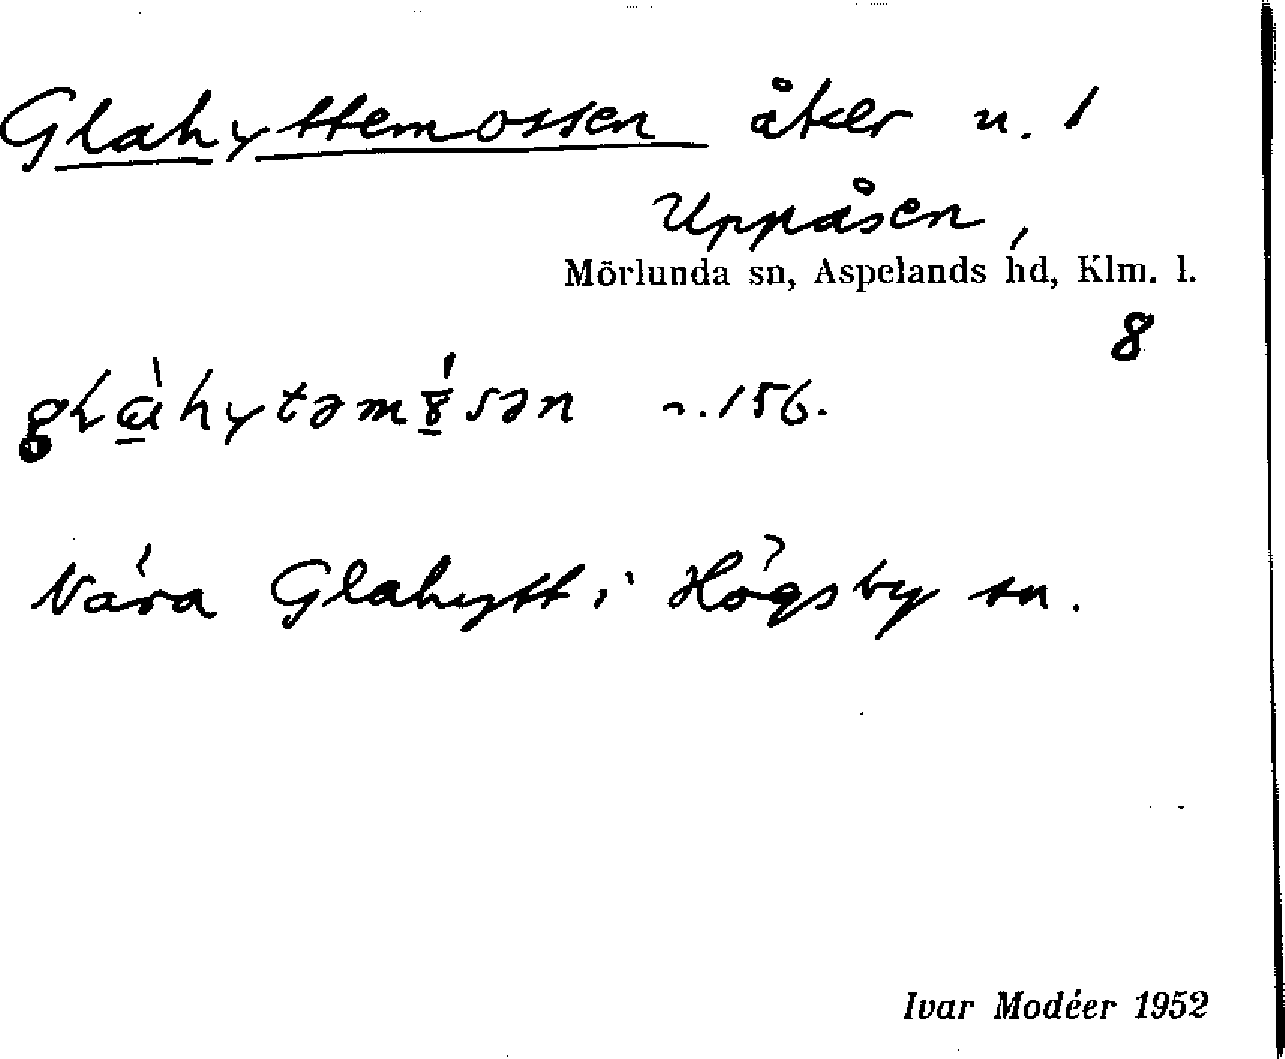 Glahyttemossen åker u. 1
Uppåsen,
Mörlunda sn, Aspelands hd, Klm. l.
8
n. 156.
Nära Glahytt i Högsby sn.
Ivar Modéer 1952